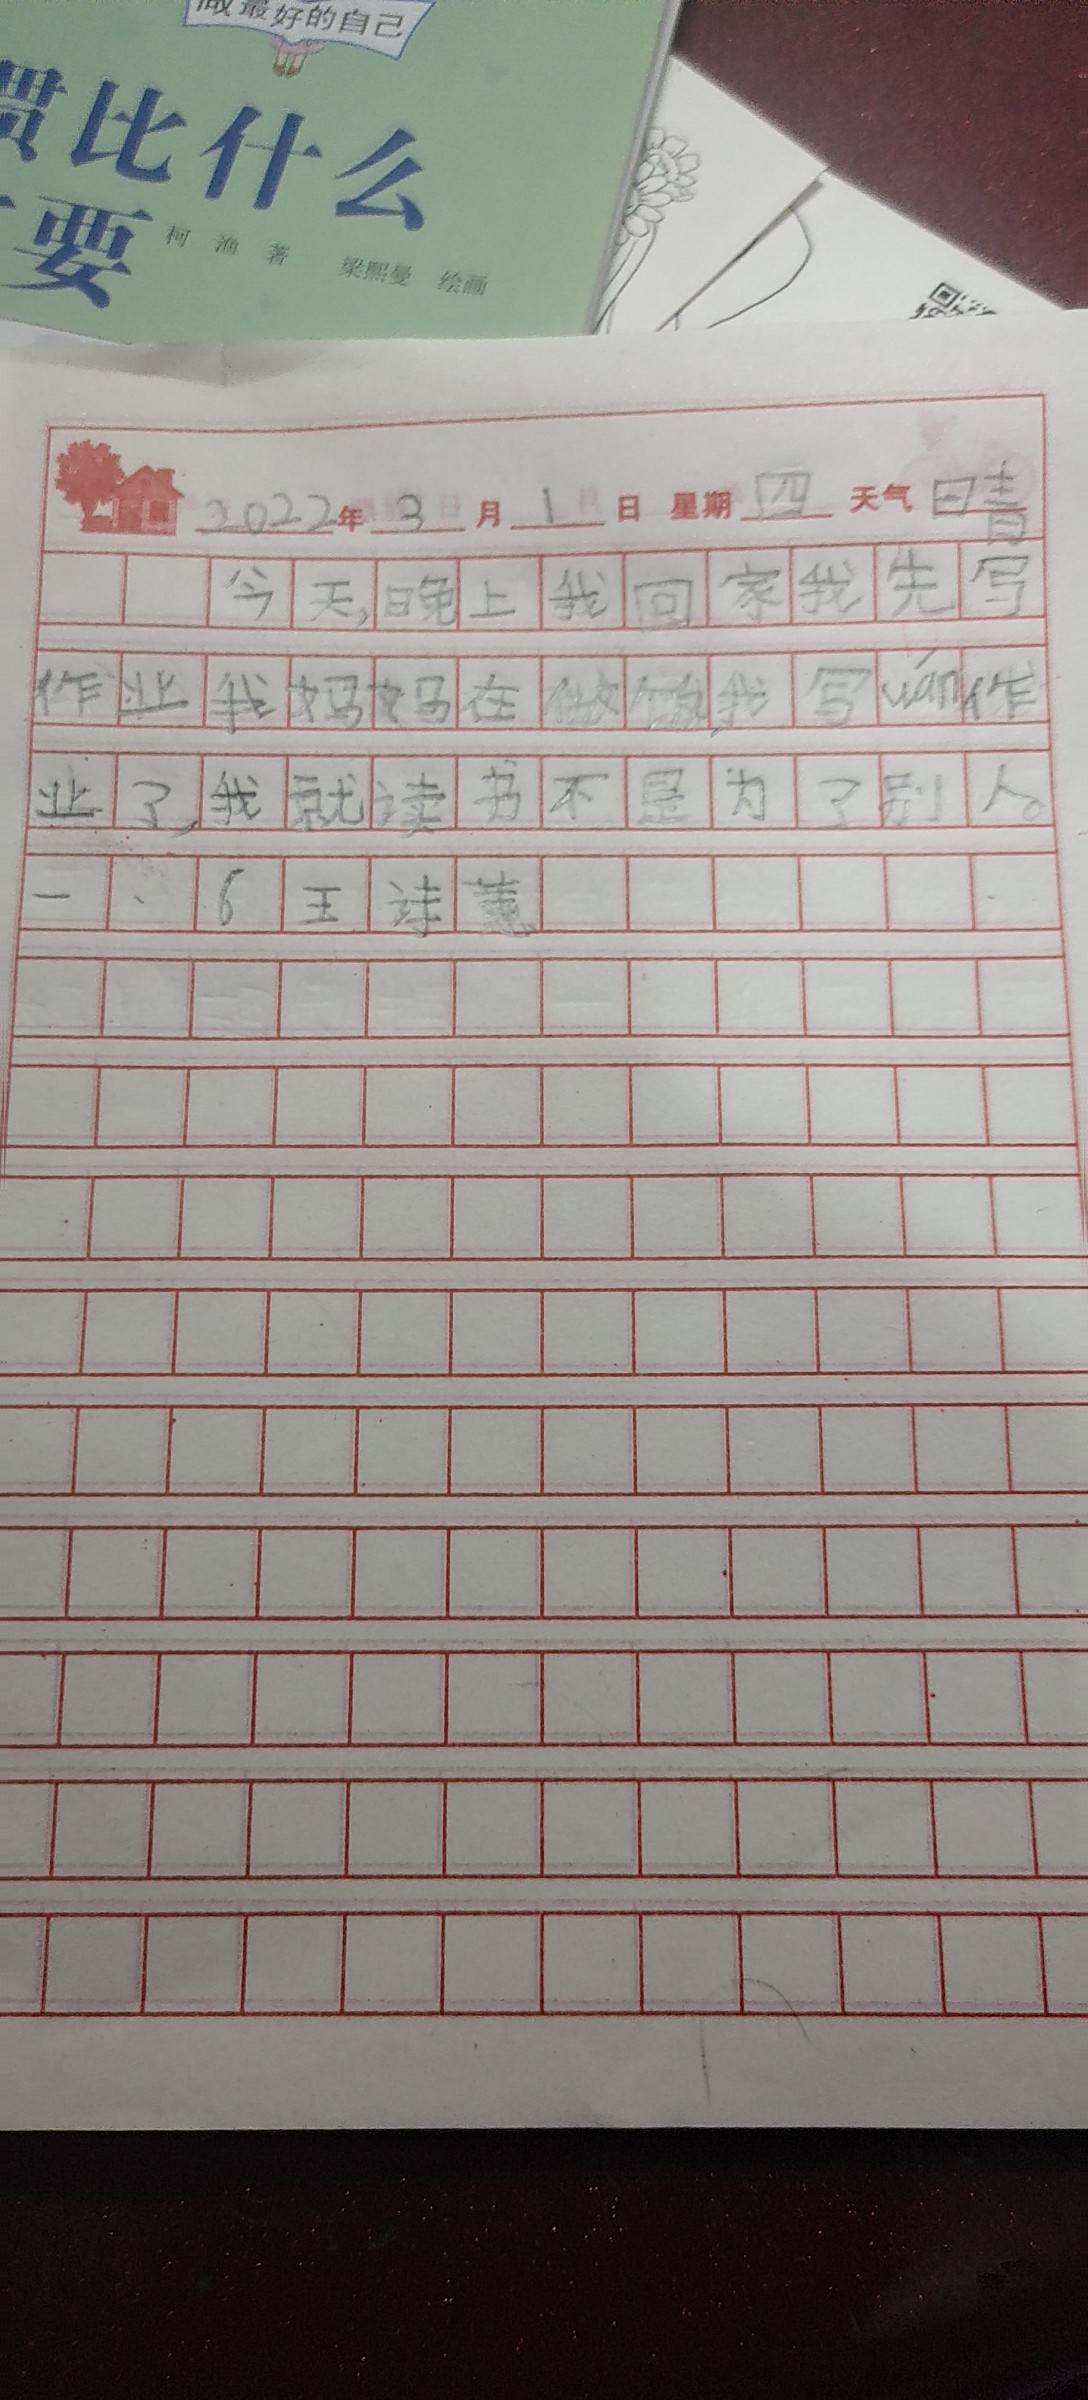 做最好的自己
惯比什么
要
柯渔 著 梁熙曼 绘画
2022年3月1日 星期四 天气晴
今天,晚上我回家我先写
作业我妈妈在做饭,我写uán作
业了,我就读书不是为了别人。
一、6王诗慧